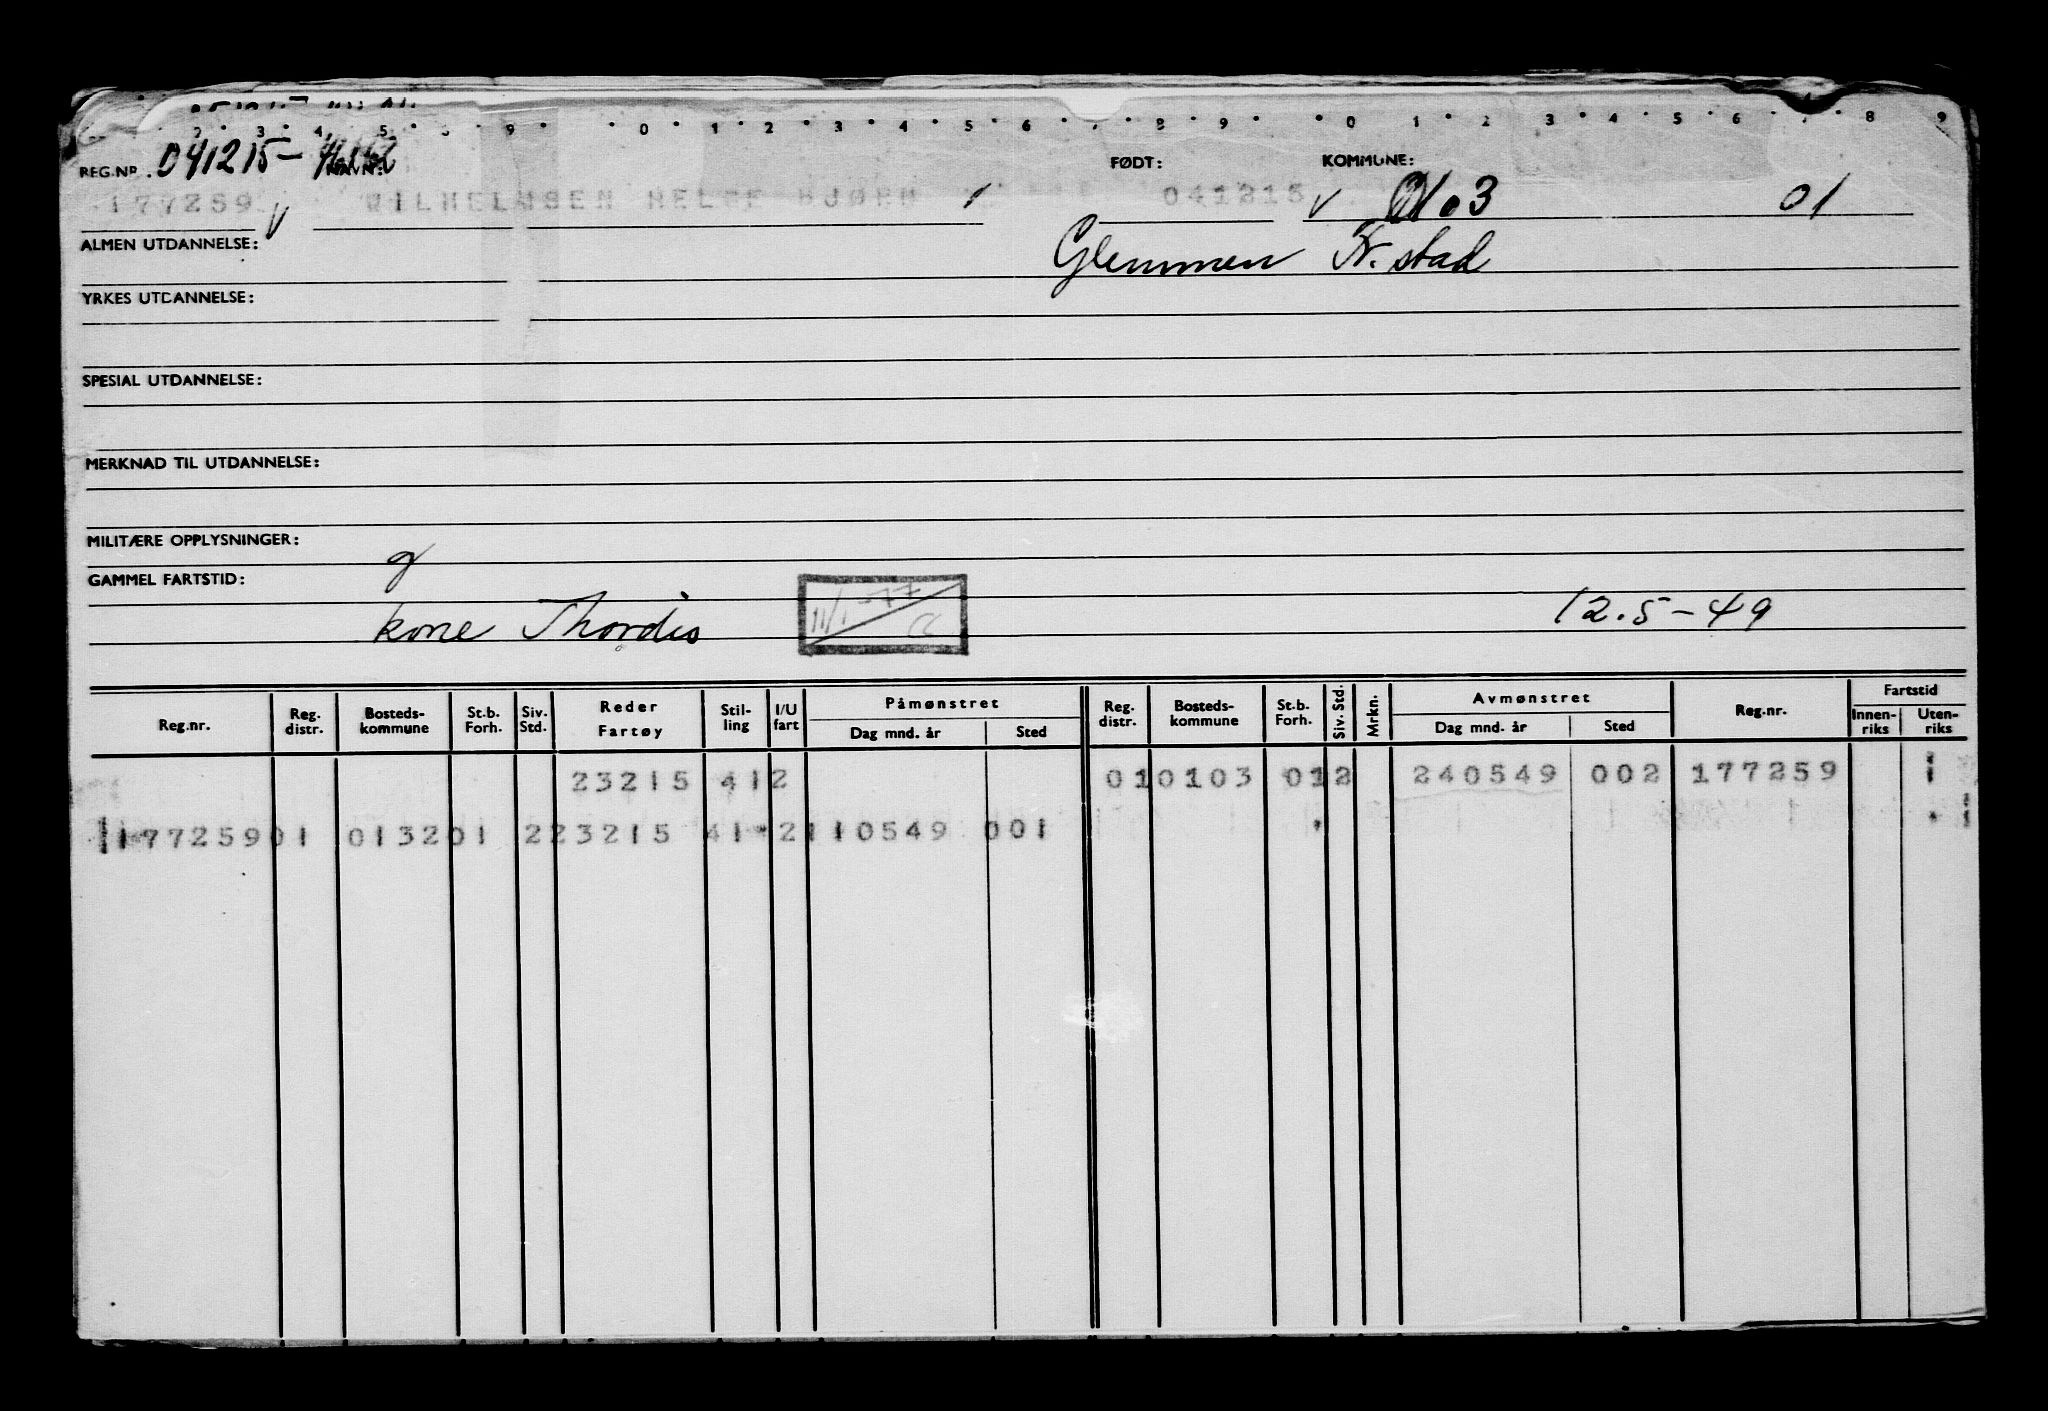 2 3 4 5 9 0 1 2 3 4 5 6 8 9 0 1 2 3 4 5 6 7 8 9
REG.NR. 041215- NAVN: FØDT: KOMMUNE:
177259 V WILHELMSEN HELGE BJØRN 041215 V 0103 01
ALMEN UTDANNELSE: Glemmen Fr. stad
YRKES UTDANNELSE:
SPESIAL UTDANNELSE:
MERKNAD TIL UTDANNELSE:
MILITÆRE OPPLYSNINGER:
g
GAMMEL FARTSTID:
kone Thordis 11/1-77 12.5-49
Reg.nr. Reg. distr. Bosteds- kommune St.b. Forh. Siv. Std. Reder Fartøy Stil- ling I/U fart Påmønstret Dag mnd. år Sted Reg. distr. Bosteds- kommune St.b. Forh. Siv. Std. Mrkn. Avmønstret Dag mnd. år Sted Reg.nr. Fartstid Innen- riks Uten- riks
23215 412 010103 012 240549 002 177259 1
177259 01 0132 01 2 23215 41 2 110549 001